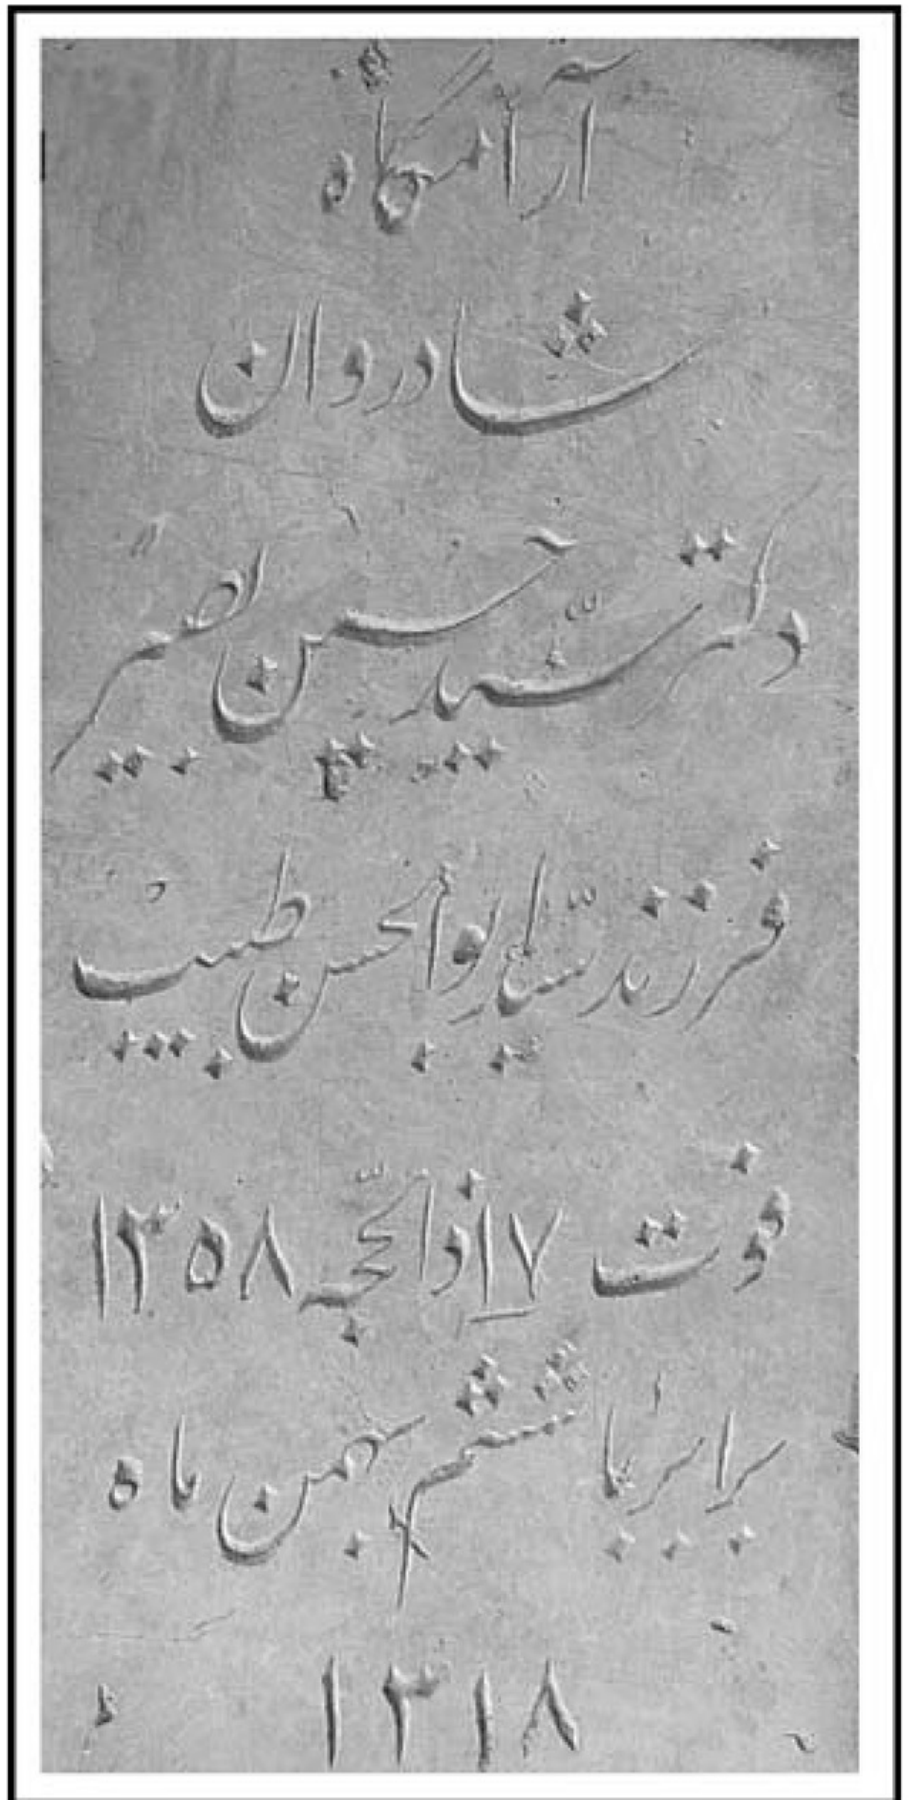 آرامگاه
شادروان
دکتر سیّد حسین نصیر
فرزند سیّد ابوالحسن طبیب
فوت ۱۷ ذالحجّه ۱۳۵۸
برابر با ششم بهمن ماه
۱۳۱۸